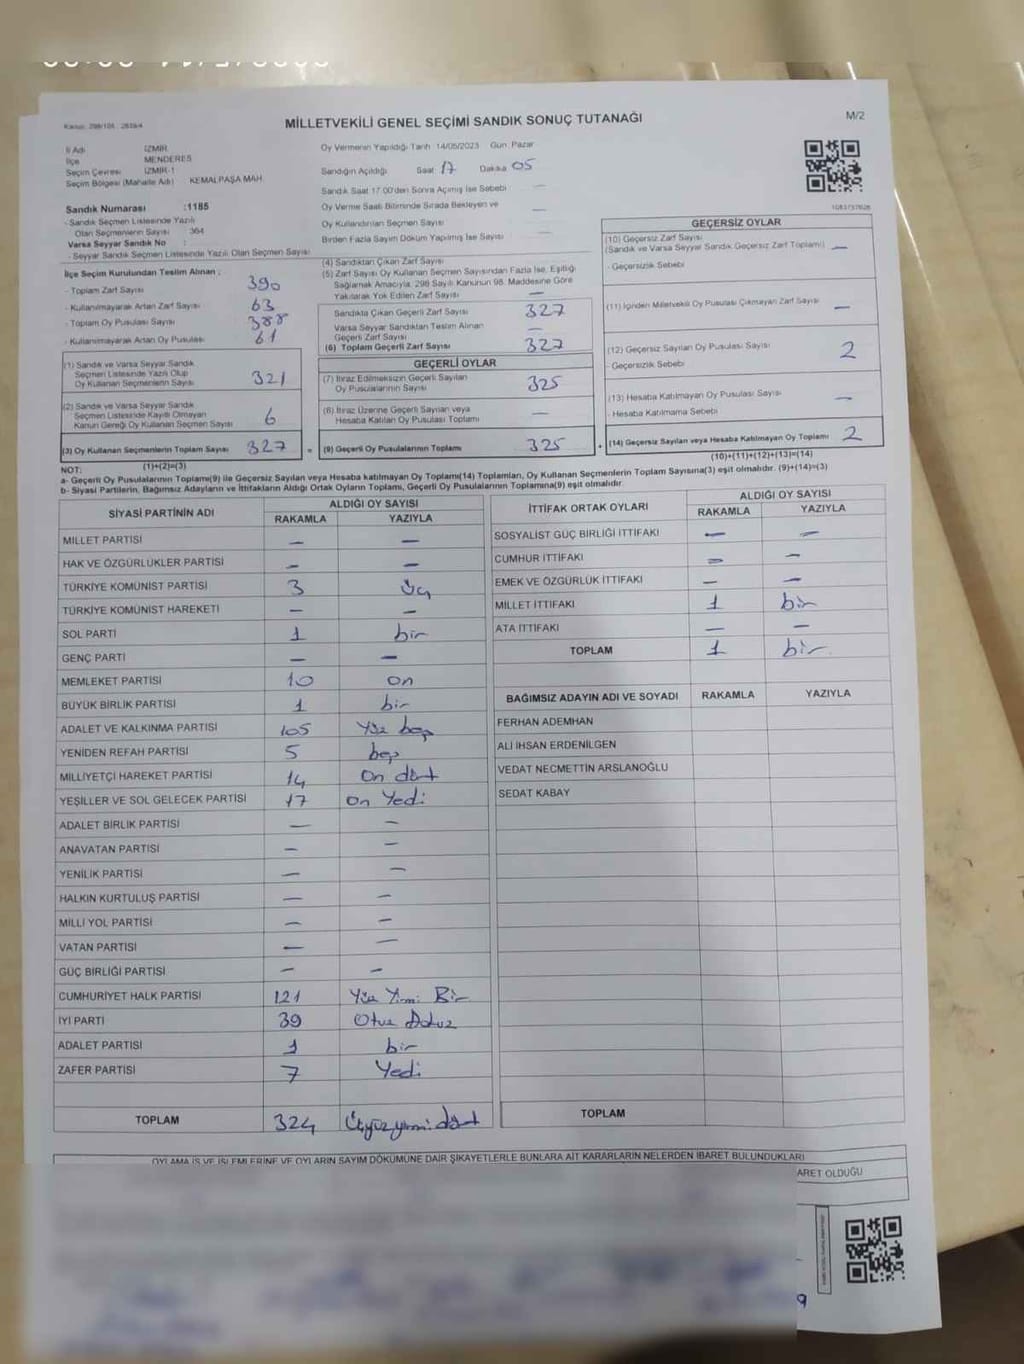 MİLLETVEKİLİ GENEL SEÇİMİ SANDIK SONUÇ TUTANAĞI
M/2
İl Adı İZMİR
İlçe MENDERES
Seçim Çevresi İZMİR-1
Seçim Bölgesi (Mahalle Adı) KEMALPAŞA MAH.
Sandık Numarası :1185
- Sandık Seçmen Listesinde Yazılı
Olan Seçmenlerin Sayısı 364
Varsa Seyyar Sandık No :
- Seyyar Sandık Seçmen Listesinde Yazılı Olan Seçmen Sayısı
Oy Vermenin Yapıldığı Tarih 14/05/2023 Gün Pazar
Sandığın Açıldığı Saat 17 Dakika 05
Sandık Saat 17.00'den Sonra Açılmış İse Sebebi —
Oy Verme Saati Bitiminde Sırada Bekleyen ve
Oy Kullandırılan Seçmen Sayısı —
Birden Fazla Sayım Döküm Yapılmış İse Sayısı —
İlçe Seçim Kurulundan Teslim Alınan ;
- Toplam Zarf Sayısı 390
- Kullanılmayarak Artan Zarf Sayısı 63
- Toplam Oy Pusulası Sayısı 388
- Kullanılmayarak Artan Oy Pusulası 61
(1) Sandık ve Varsa Seyyar Sandık
Seçmen Listesinde Yazılı Olup
Oy Kullanan Seçmenlerin Sayısı 321
(2) Sandık ve Varsa Seyyar Sandık
Seçmen Listesinde Kaydı Olmayan
Kanun Gereği Oy Kullanan Seçmen Sayısı 6
(3) Oy Kullanan Seçmenlerin Toplam Sayısı 327
(1)+(2)=(3)
(4) Sandıktan Çıkan Zarf Sayısı
(5) Zarf Sayısı Oy Kullanan Seçmen Sayısından Fazla İse, Eşitliği
Sağlamak Amacıyla, 298 Sayılı Kanunun 98. Maddesine Göre
Yakılarak Yok Edilen Zarf Sayısı —
Sandıkta Çıkan Geçerli Zarf Sayısı 327
Varsa Seyyar Sandıktan Teslim Alınan
Geçerli Zarf Sayısı —
(6) Toplam Geçerli Zarf Sayısı 327
GEÇERLİ OYLAR
(7) İtiraz Edilmeksizin Geçerli Sayılan
Oy Pusulalarının Sayısı 325
(8) İtiraz Üzerine Geçerli Sayılan veya
Hesaba Katılan Oy Pusulası Toplamı —
(9) Geçerli Oy Pusulalarının Toplamı 325
GEÇERSİZ OYLAR
(10) Geçersiz Zarf Sayısı
(Sandık ve Varsa Seyyar Sandık Geçersiz Zarf Toplamı) —
- Geçersizlik Sebebi
(11) İçinden Milletvekili Oy Pusulası Çıkmayan Zarf Sayısı —
(12) Geçersiz Sayılan Oy Pusulası Sayısı 2
- Geçersizlik Sebebi
(13) Hesaba Katılmayan Oy Pusulası Sayısı —
- Hesaba Katılmama Sebebi
(14) Geçersiz Sayılan veya Hesaba Katılmayan Oy Pusulası Toplamı 2
(10)+(11)+(12)+(13)=(14)
NOT:
a- Geçerli Oy Pusulalarının Toplamı(9) ile Geçersiz Sayılan veya Hesaba katılmayan Oy Toplamı(14) Toplamları, Oy Kullanan Seçmenlerin Toplam Sayısına(3) eşit olmalıdır. (9)+(14)=(3)
b- Siyasi Partilerin, Bağımsız Adayların ve İttifakların Aldığı Ortak Oyların Toplamı, Geçerli Oy Pusulalarının Toplamına(9) eşit olmalıdır.
SİYASİ PARTİNİN ADI ALDIĞI OY SAYISI
RAKAMLA YAZIYLA
MİLLET PARTİSİ — —
HAK VE ÖZGÜRLÜKLER PARTİSİ — —
TÜRKİYE KOMÜNİST PARTİSİ 3 üç
TÜRKİYE KOMÜNİST HAREKETİ — —
SOL PARTİ 1 bir
GENÇ PARTİ — —
MEMLEKET PARTİSİ 10 on
BÜYÜK BİRLİK PARTİSİ 1 bir
ADALET VE KALKINMA PARTİSİ 105 Yüz beş
YENİDEN REFAH PARTİSİ 5 beş
MİLLİYETÇİ HAREKET PARTİSİ 14 On dört
YEŞİLLER VE SOL GELECEK PARTİSİ 17 On Yedi
ADALET BİRLİK PARTİSİ — —
ANAVATAN PARTİSİ — —
YENİLİK PARTİSİ — —
HALKIN KURTULUŞ PARTİSİ — —
MİLLİ YOL PARTİSİ — —
VATAN PARTİSİ — —
GÜÇ BİRLİĞİ PARTİSİ — —
CUMHURİYET HALK PARTİSİ 121 Yüz Yirmi Bir
İYİ PARTİ 39 Otuz Dokuz
ADALET PARTİSİ 1 bir
ZAFER PARTİSİ 7 Yedi
TOPLAM 324 Üçyüzyirmi dört
İTTİFAK ORTAK OYLARI ALDIĞI OY SAYISI
RAKAMLA YAZIYLA
SOSYALİST GÜÇ BİRLİĞİ İTTİFAKI — —
CUMHUR İTTİFAKI — —
EMEK VE ÖZGÜRLÜK İTTİFAKI — —
MİLLET İTTİFAKI 1 bir
ATA İTTİFAKI — —
TOPLAM 1 bir
BAĞIMSIZ ADAYIN ADI VE SOYADI RAKAMLA YAZIYLA
FERHAN ADEMHAN
ALİ İHSAN ERDENİLGEN
VEDAT NECMETTİN ARSLANOĞLU
SEDAT KABAY
TOPLAM
OYLAMA İŞ VE İŞLEMLERİNE VE OYLARIN SAYIM DÖKÜMÜNE DAİR ŞİKAYETLERLE BUNLARA AİT KARARLARIN NELERDEN İBARET BULUNDUKLARI
ARET OLDUĞU